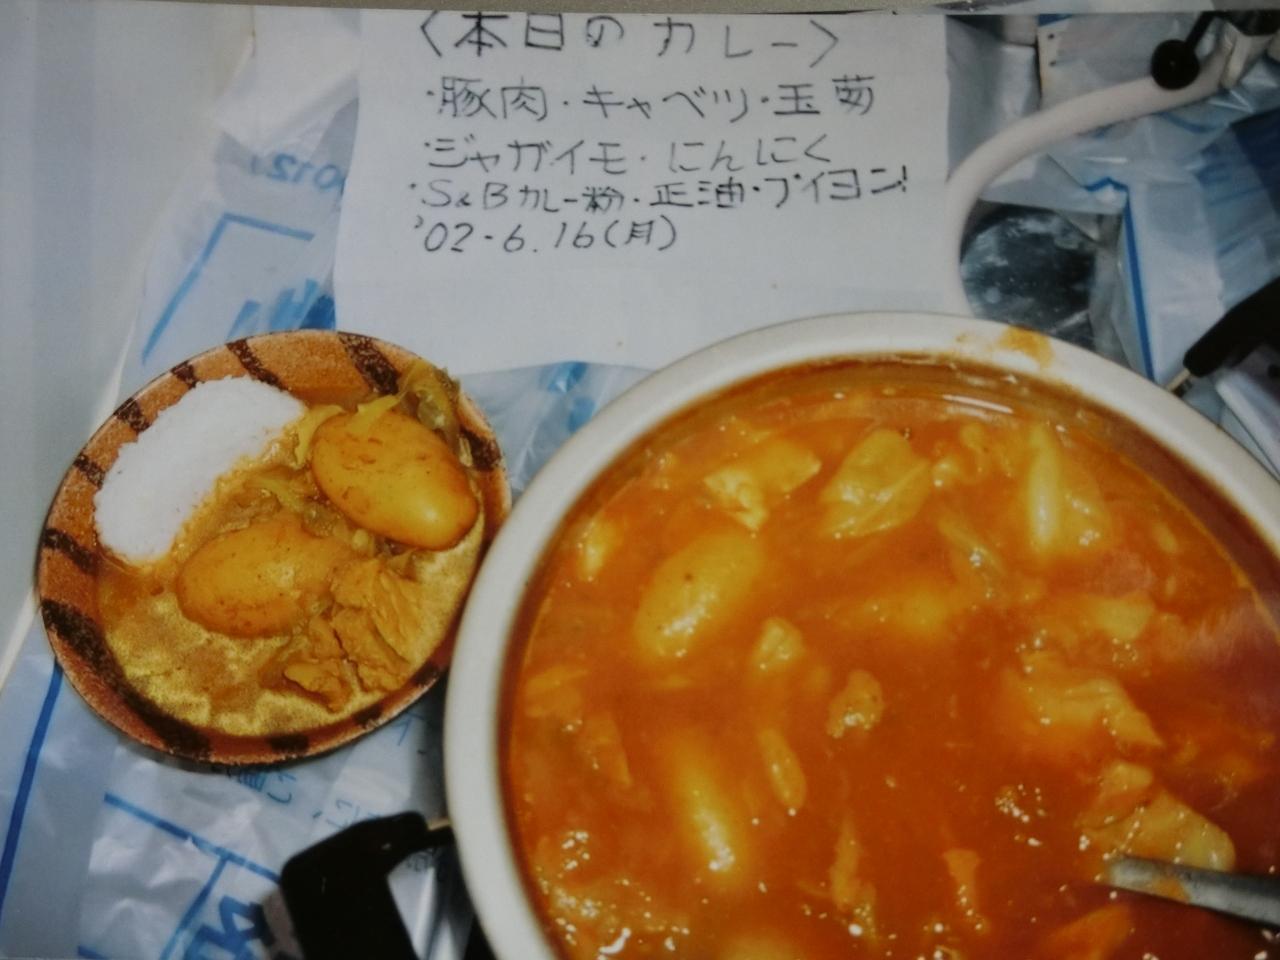 〈本日のカレー〉
・豚肉・キャベツ・玉葱
・ジャガイモ・にんにく
・S&Bカレー粉・正油・ブイヨン
'02-6.16(月)